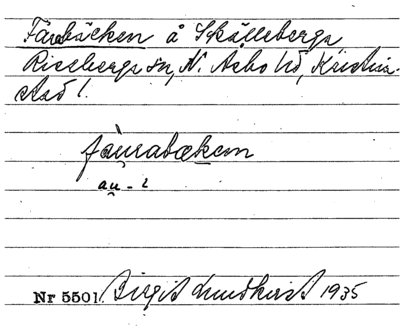 Färabäcken å Skälleberga
Riseberga sn, N. Åsbo hd, Kristian-
stad l.
fàu̯rabækəm
au̯ - 2
Nr 5501. Birgit Lundkvist 1935